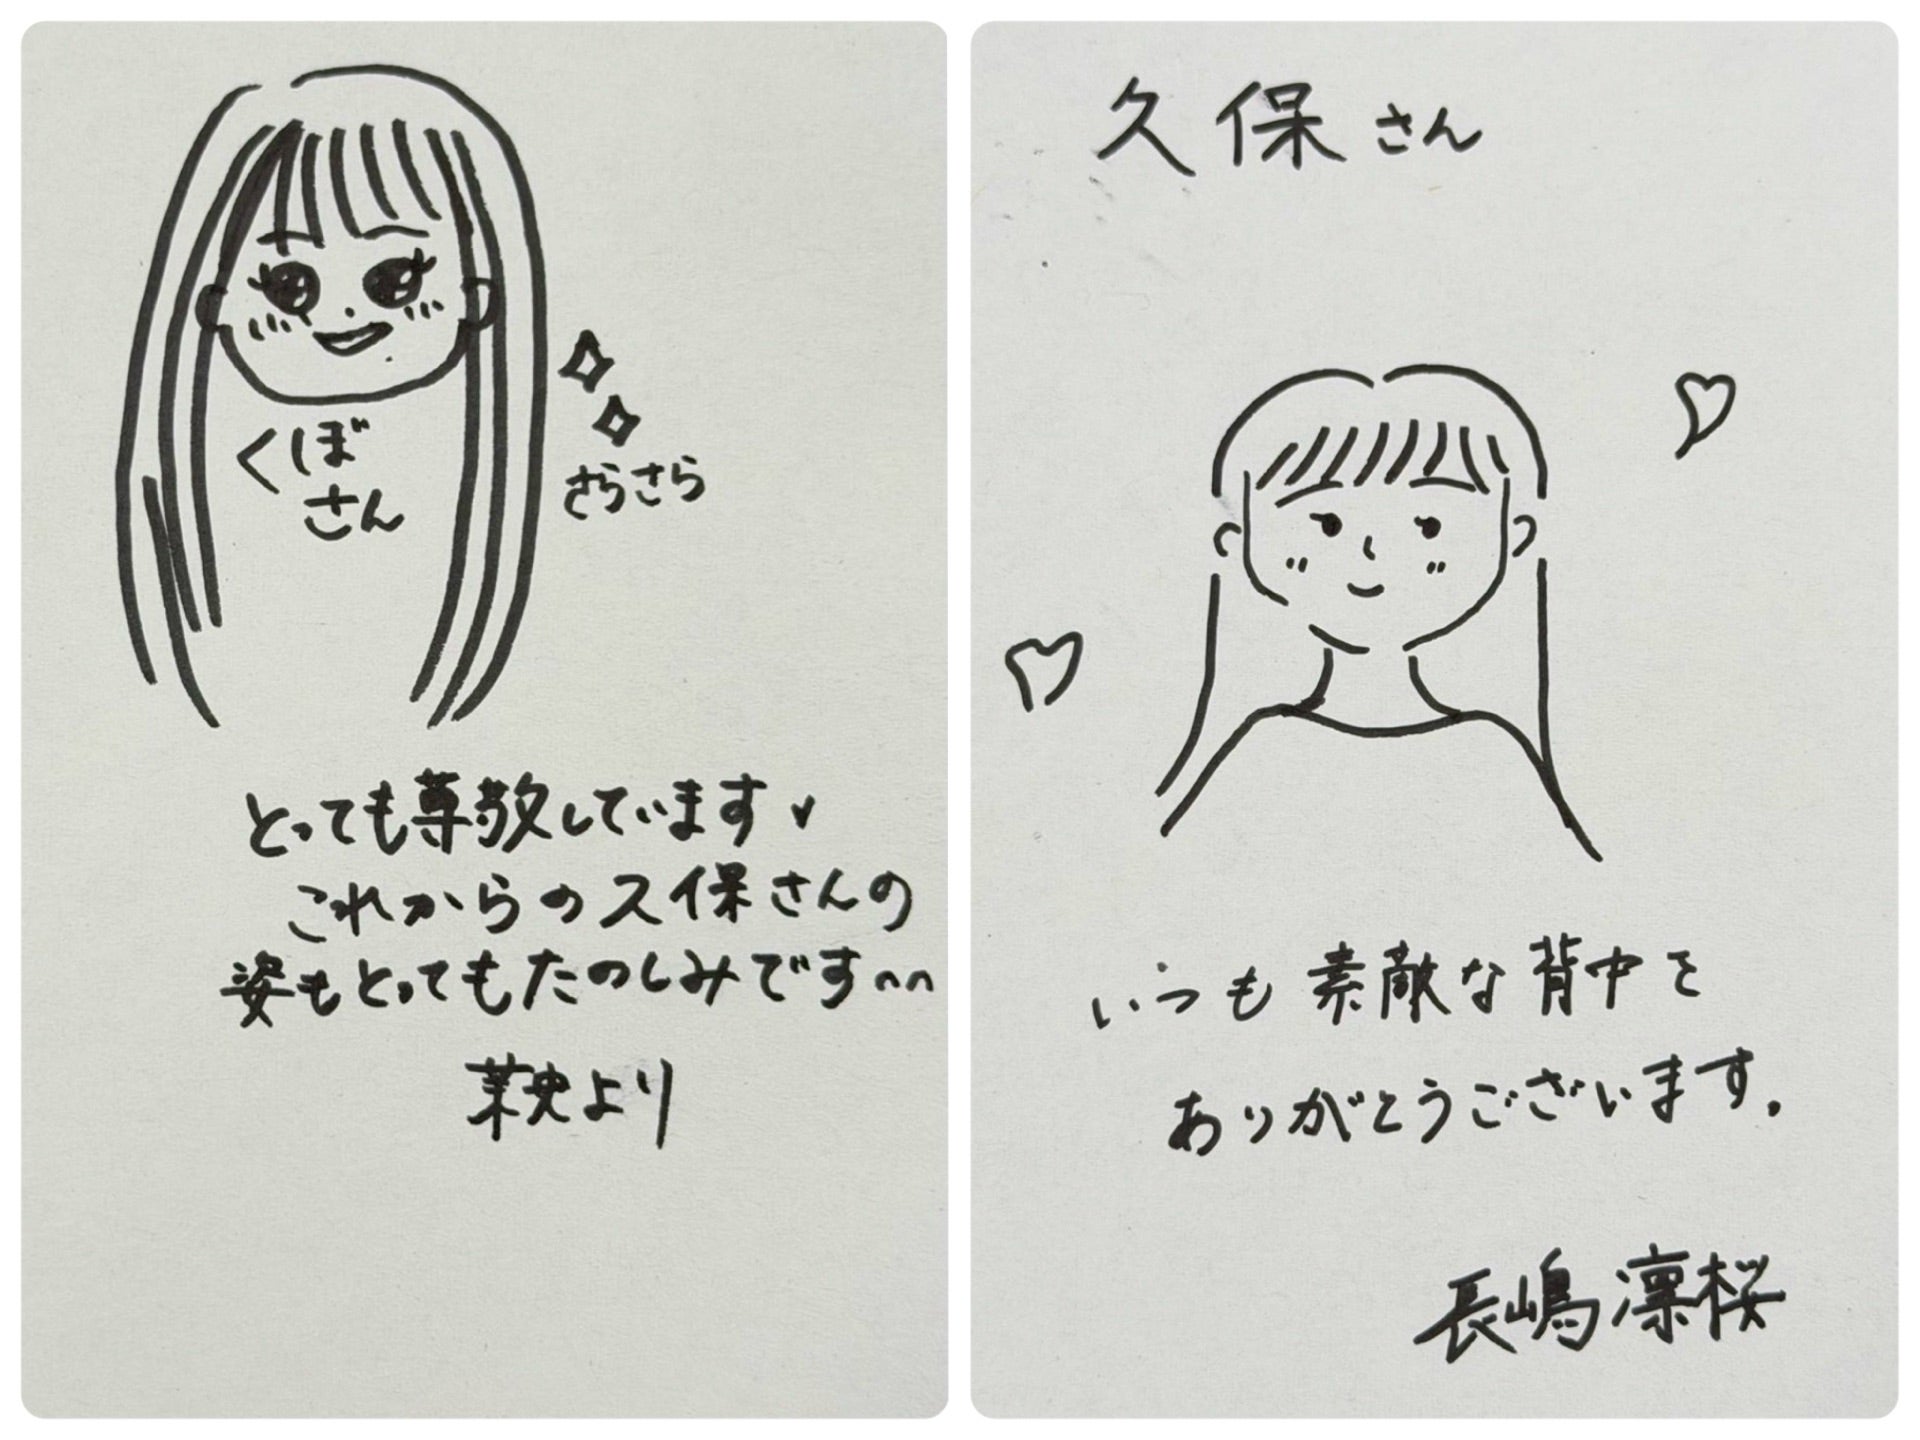 くぼ
さん
さらさら
とっても尊敬しています
これからの久保さんの
姿もとってもたのしみです^^
茉央より
久保さん
いつも素敵な背中を
ありがとうございます。
長嶋凛桜